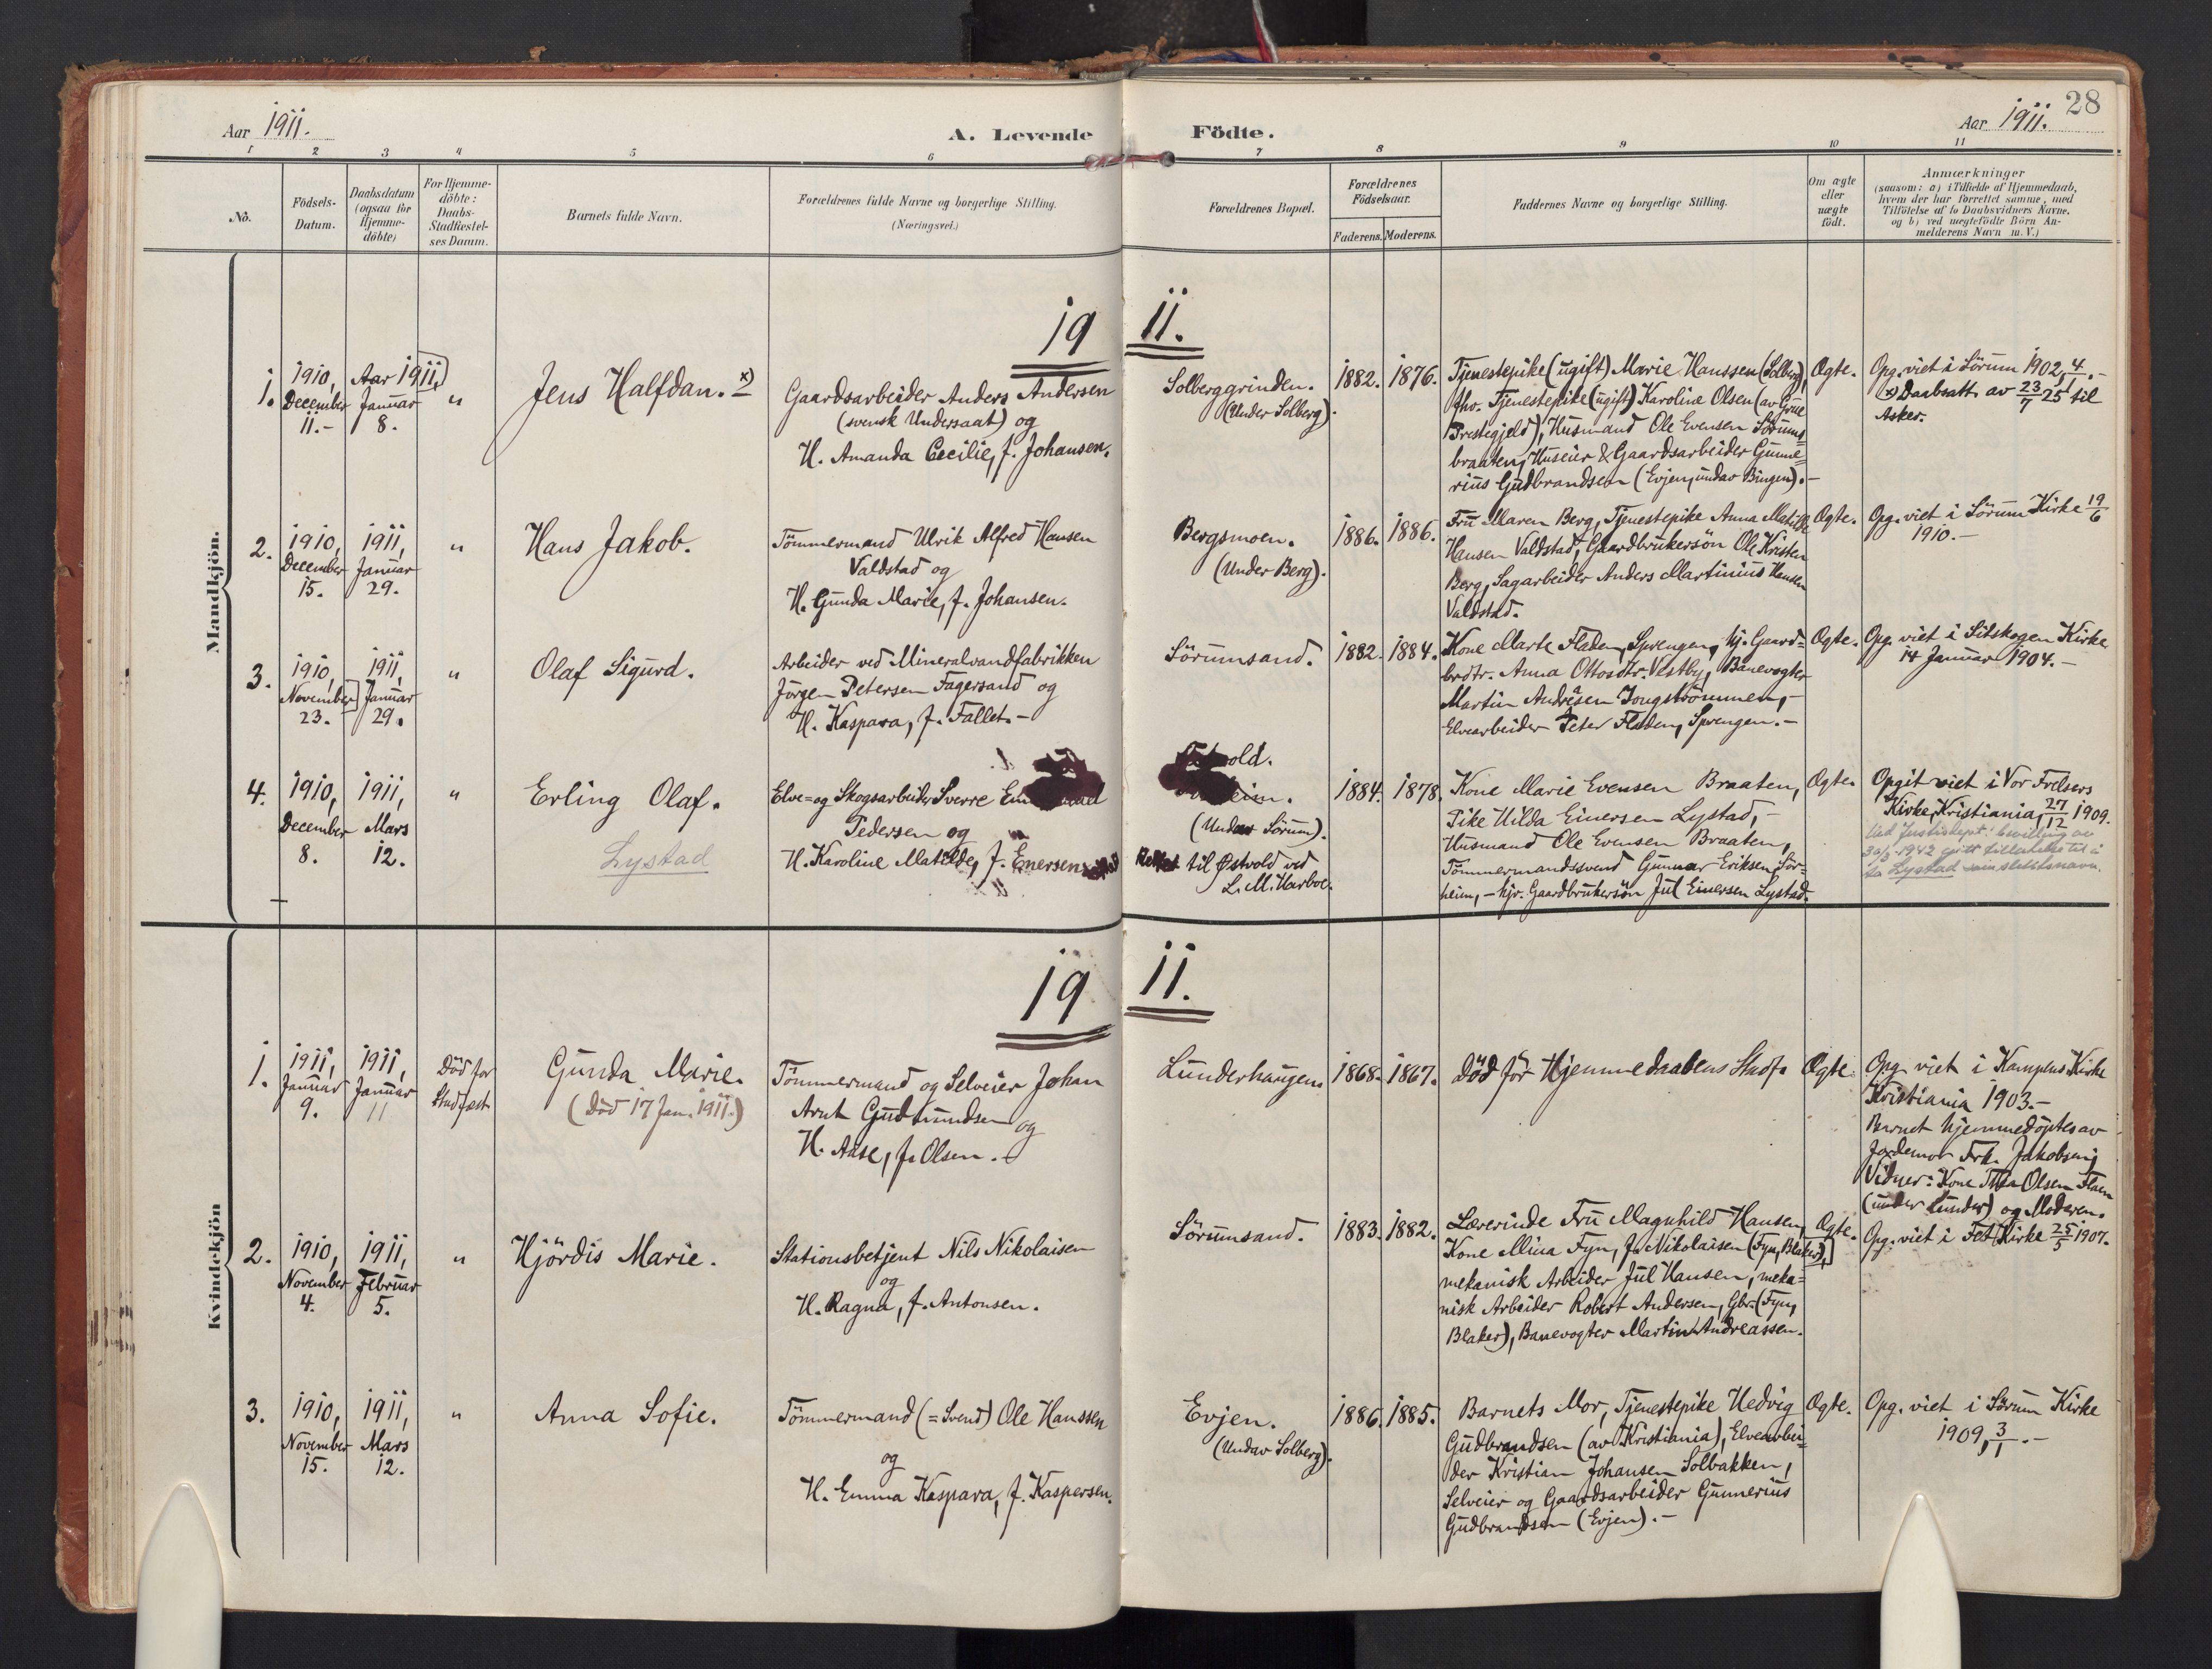 Aar 1911.
A. Levende Födte.
Aar 1911.
28
1 2 3 4 5 6 7 8 9 10 11
No.
Födsels-
Datum.
Daabsdatum
(ogsaa for
Hjemme-
döbte)
For Hjemme-
döbte:
Daabs-
Stadfæstel-
ses Datum.
Barnets fulde Navn.
Forældrenes fulde Navne og borgerlige Stilling.
(Næringsvei.)
Forældrenes Bopæl.
Forældrenes
Födselsaar.
Faderens. Moderens.
Faddernes Navne og borgerlige Stilling.
Om ægte
eller
uægte
födt.
Anmærkninger
(saasom: a) i Tilfælde af Hjemmedaab,
hvem der har forrettet samme, med
Tilföielse af to Daabsvidners Navne.
og b) ved uægtefödte Börn An-
melderens Navn m. V.)
Mandkjön.
1911.
1.
1910,
December
11.-
Aar 1911,
Januar
8.
"
Jens Halfdan. x)
Gaardsarbeider Anders Andersen
(svensk Undersaat) og
H. Amanda Cecilie, f. Johansen.
Solberggrinden.
(Under Solberg).
1882.
1876.
Tjenestepike (ugift) Marie Hanssen (Solberg),
fhv. Tjenestepike (ugift) Karoline Olsen (av Grue
Prestegjeld), Husmand Ole Evensen Sörums-
braaten, Huseier & Gaardsarbeider Gunne-
rius Gudbrandsen (Evjen, undav Bingen).-
Ægte.
Opg. viet i Sörum 1902, 4/ .-
x) Daabsatt. av 23/7 25 til
Asker.
2.
1910,
December
15.
1911,
Januar
29.
"
Hans Jakob.
Tömmermand Ulrik Alfred Hansen
Valdstad og
H. Gunda Marie, f. Johansen.
Bergsmoen.
(Under Berg).
1886.
1886.
Fru Maren Berg, Tjenestepike Anna Matilde
Hansen Valdstad, Gaardbrukersön Ole Kristen
Berg, Sagarbeider Anders Martinius Hansen
Valdstad.
Ægte.
Opg. viet i Sörum Kirke 19/6
1910.-
3.
1910,
November
23.
1911,
Januar
29.
"
Olaf Sigurd.
Arbeider ved Mineralvandfabrikken
Jörgen Petersen Fagersand og
H. Kaspara, f. Fallet.-
Sörumsand.
1882.
1884.
Kone Marte Fladen, Sprengen, hj. Gaard-
brdtr. Anna Ottosdtr. Vestby, Banevogter
Martin Andrésen Jongströmmen,-
Elvearbeider Peter Fladen, Sprengen.-
Ægte.
Opg. viet i Sitskogen Kirke
14 Januar 1904.-
4.
1910,
December
8.
1911,
Mars
12.
"
Erling Olaf.
Lystad
Elve- og Skogsarbeider Sverre
Pedersen og
H. Karoline Matilde, f. Enersen
(Undav Sörum).
Rettet til Østvold ved
L. M. Harboe.
1884.
1878.
Kone Marie Evensen Braaten,
Pike Hilda Einersen Lystad,-
Husmand Ole Evensen Braaten,
Tömmermandssvend Gunnar Eriksen Sör-
heim,- hjv. Gaardbrukersön Jul Einersen Lystad.
Ægte.
Opgit viet i Vor Frelsers
Kirke, Kristiania, 27/12 1909.
Ved Justisdept.s bevilling av
30/3 1942 gitt tillatelse til å
ta Lystad som slektsnavn.
Kvindekjön
1911.
1.
1911,
Januar
9.
1911,
Januar
11
Död för
Stadfæst
Gunda Marie.
(Död 17 Jan. 1911.)
Tömmermand og Selveier Johan
Arnt Gudmundsen og
H. Aase, f. Olsen.
Lunderhaugen
1868.
1867.
Död för Hjemmedaabens Stadf.
Ægte.
Opg. viet i Kampens Kirke
Kristiania 1903.-
Barnet hjemmedöptes av
Jordemor Frk. Jakobsen;
Vidner: Kone Thea Olsen Flaen
(under Lunder) og Moderen.
2.
1910,
November
4.
1911,
Februar
5.
"
Hjördis Marie.
Stationsbetjent Nils Nikolaisen
og
H. Ragna, f. Antonsen.
Sörumsand.
1883.
1882.
Lærerinde Fru Magnhild Hansen,
Kone Mina Fyn, f. Nikolaisen (Fyn, Blaker),
mekanisk Arbeider Jul Hansen, meka-
nisk Arbeider Robert Andersen, Gbr. (Fyn,
Blaker), Banevogter Martin Andreassen.
Ægte.
Opg. viet i Fet Kirke 25/5 1907.
3.
1910,
November
15.
1911,
Mars
12.
"
Anna Sofie.
Tömmermand (=Svend) Ole Hanssen
og
H. Emma Kaspara, f. Kaspersen.
Evjen.
(Undav Solberg).
1886.
1885.
Barnets Mor, Tjenestepike Hedvig
Gudbrandsen (av Kristiania), Elvearbei-
der Kristian Johansen Solbakken,
Selveier og Gaardsarbeider Gunnerius
Gudbrandsen (Evjen).-
Ægte.
Opg. viet i Sörum Kirke
1909, 3/1.-